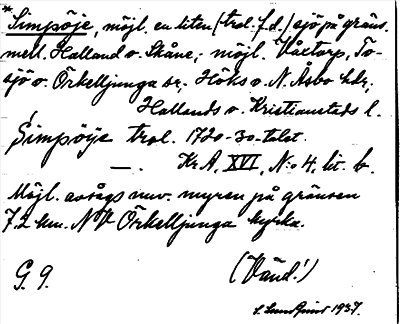 *Simpöje, möjl. en liten (trol. f.d.) sjö på gräns.
mell. Halland o. Skåne, möjl. Våxtorp, To-
sjö o. Örkelljunga sr. Höks o. N. Åsbo hdr,
Hallands o. Kristianstads l.
Simpöije trol. 1720-30-talet.
— Kr A, XVI, N:o 4, lit. b.
Möjl. avsågs nuv. myren på gränsen
7.2 km. NV Örkelljunga kyrka.
G. 9. (Vänd!)
S. Lundquist 1937.